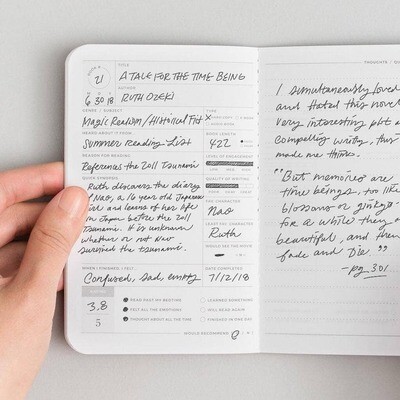 TITLE
A TALE FOR THE TIME BEING
21
AUTHOR
RUTH OZEKI
6 30 18
GENRE / SUBJECT
Magic Realism/Historical Fict
TYPE
HEARD ABOUT IT FROM
Summer Reading List
BOOK LENGTH
422
REASON FOR READING
References the 2011 Tsunami
LEVEL OF ENGAGEMENT
QUICK SYNOPSIS
Ruth discovers the diary
of Nao, a 16 year old Japanese
girl and learns of her life
in Japan before the 2011
tsunami. It is unknown
whether or not Nao
survived the tsunami.
QUALITY OF WRITING
Nao
Ruth
WOULD SEE THE MOVIE
WHEN I FINISHED, I FELT...
Confused, sad, empty
DATE COMPLETED
7/12/18
3.8
5
READ PAST MY BEDTIME
FELT ALL THE EMOTIONS
THOUGHT ABOUT ALL THE TIME
LEARNED SOMETHING
WILL READ AGAIN
FINISHED IN ONE DAY
WOULD RECOMMEND
THOUGHTS
I simultaneously loved
and hated this novel
very interesting plot
compelling writing, this
made me think.
"But memories are
time beings, too, like
blossoms or ginkgo
for a while they
beautiful, and then
fade and die."
-pg 301